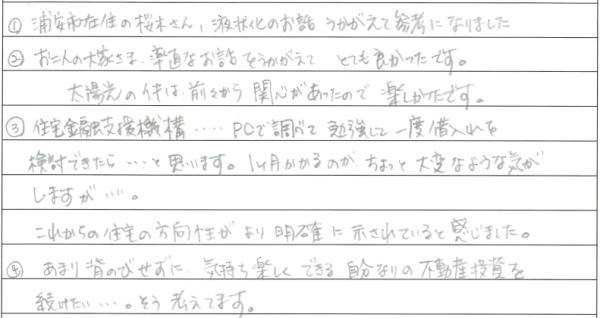 ① 浦安市在住の桜木さん、液状化のお話うかがえて参考になりました
② お二人の大家さま、率直なお話をうかがえて とても良かったです。
太陽光の件は、前々から関心があったので 楽しかったです。
③ 住宅金融支援機構‥‥‥PCで調べて勉強して一度借入れを
検討できたら‥‥と思います。1ヶ月かかるのが、ちょっと大変なような気が
しますが‥‥。
これからの住宅の方向性がより明確に示されていると感じました。
④ あまり背のびせずに、気持ち楽しくできる自分なりの不動産投資を
続けたい‥‥。そう考えてます。